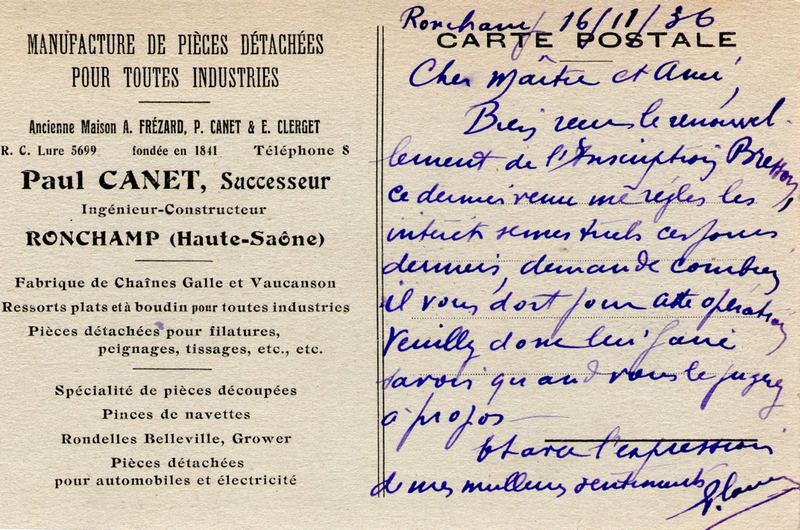 MANUFACTURE DE PIÈCES DÉTACHÉES
POUR TOUTES INDUSTRIES
Ancienne Maison A. FRÉZARD, P. CANET & E. CLERGET
R. C. Lure 5699 fondée en 1841 Téléphone 8
Paul CANET, Successeur
Ingénieur-Constructeur
RONCHAMP (Haute-Saône)
Fabrique de Chaînes Galle et Vaucanson
Ressorts plats et à boudin pour toutes industries
Pièces détachées pour filatures,
peignages, tissages, etc., etc.
Spécialité de pièces découpées
Pinces de navettes
Rondelles Belleville, Grower
Pièces détachées
pour automobiles et électricité
Ronchamp 16/11/36
CARTE POSTALE
Cher Maître et Ami,
Bien reçu le renouvel-
lement de l'Inscription
ce dernier venu me régler les
intérêts semestriels ces jours
derniers, demande combien
il vous doit pour cette opération
Veuillez donc lui faire
savoir quand vous le jugerez
à propos
Et avec l'expression
de mes meilleurs sentiments